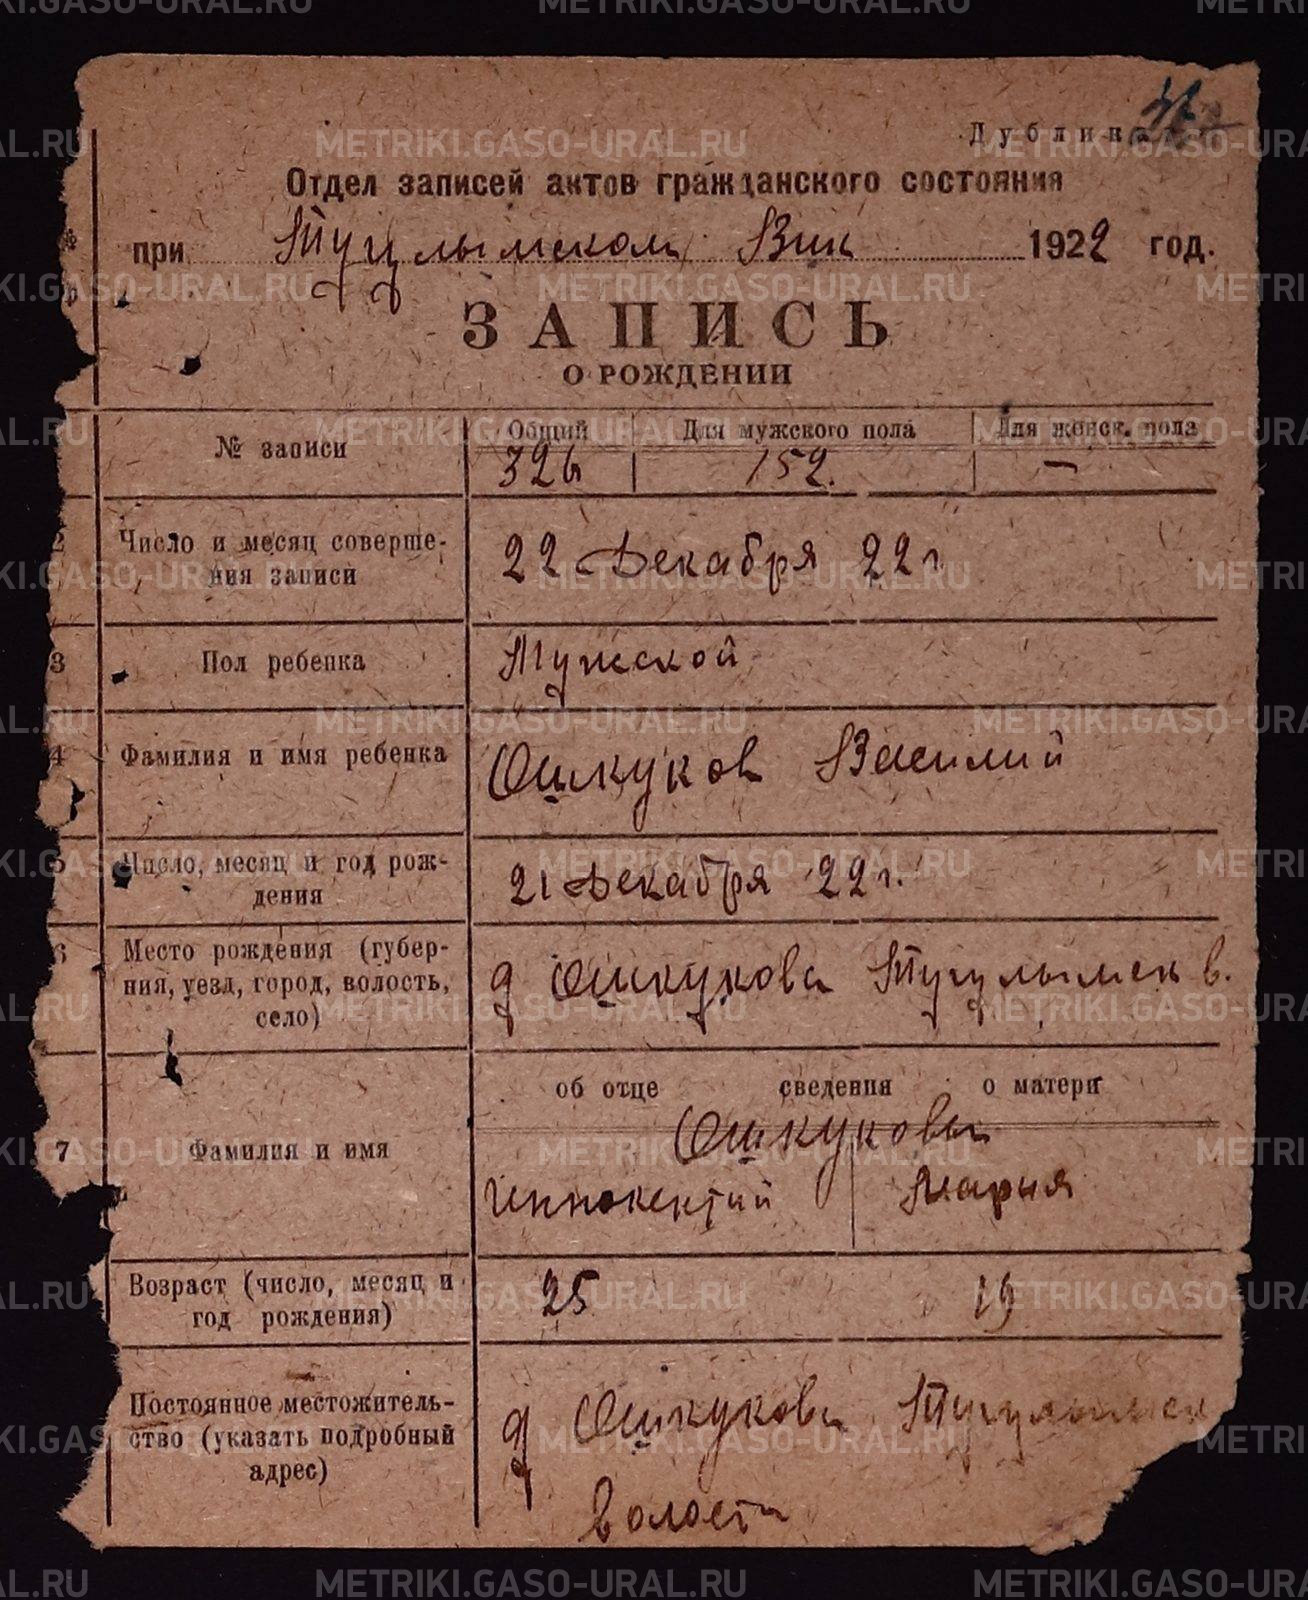 Дубликат
Отдел записей актов гражданского состояния
при Тугулымском Вик 1922 год.
ЗАПИСЬ
О РОЖДЕНИИ
№ записи
Общий Для мужского пола Для женск. пола
326 152. —
2 Число и месяц соверше-
ния записи
22 Декабря 22 г
3 Пол ребенка Мужской
4 Фамилия и имя ребенка Ошкуков Василий
5 Число, месяц и год рож-
дения
21 Декабря 22 г.
6 Место рождения (губер-
ния, уезд, город, волость,
село)
д Ошкукова Тугулымск в.
об отце сведения о матери
7 Фамилия и имя
Ошкуковы
Иннокентий Мария
Возраст (число, месяц и
год рождения)
25 19
Постоянное местожитель-
ство (указать подробный
адрес)
д Ошкукова Тугулымск
Волости
METRIKI.GASO-URAL.RU